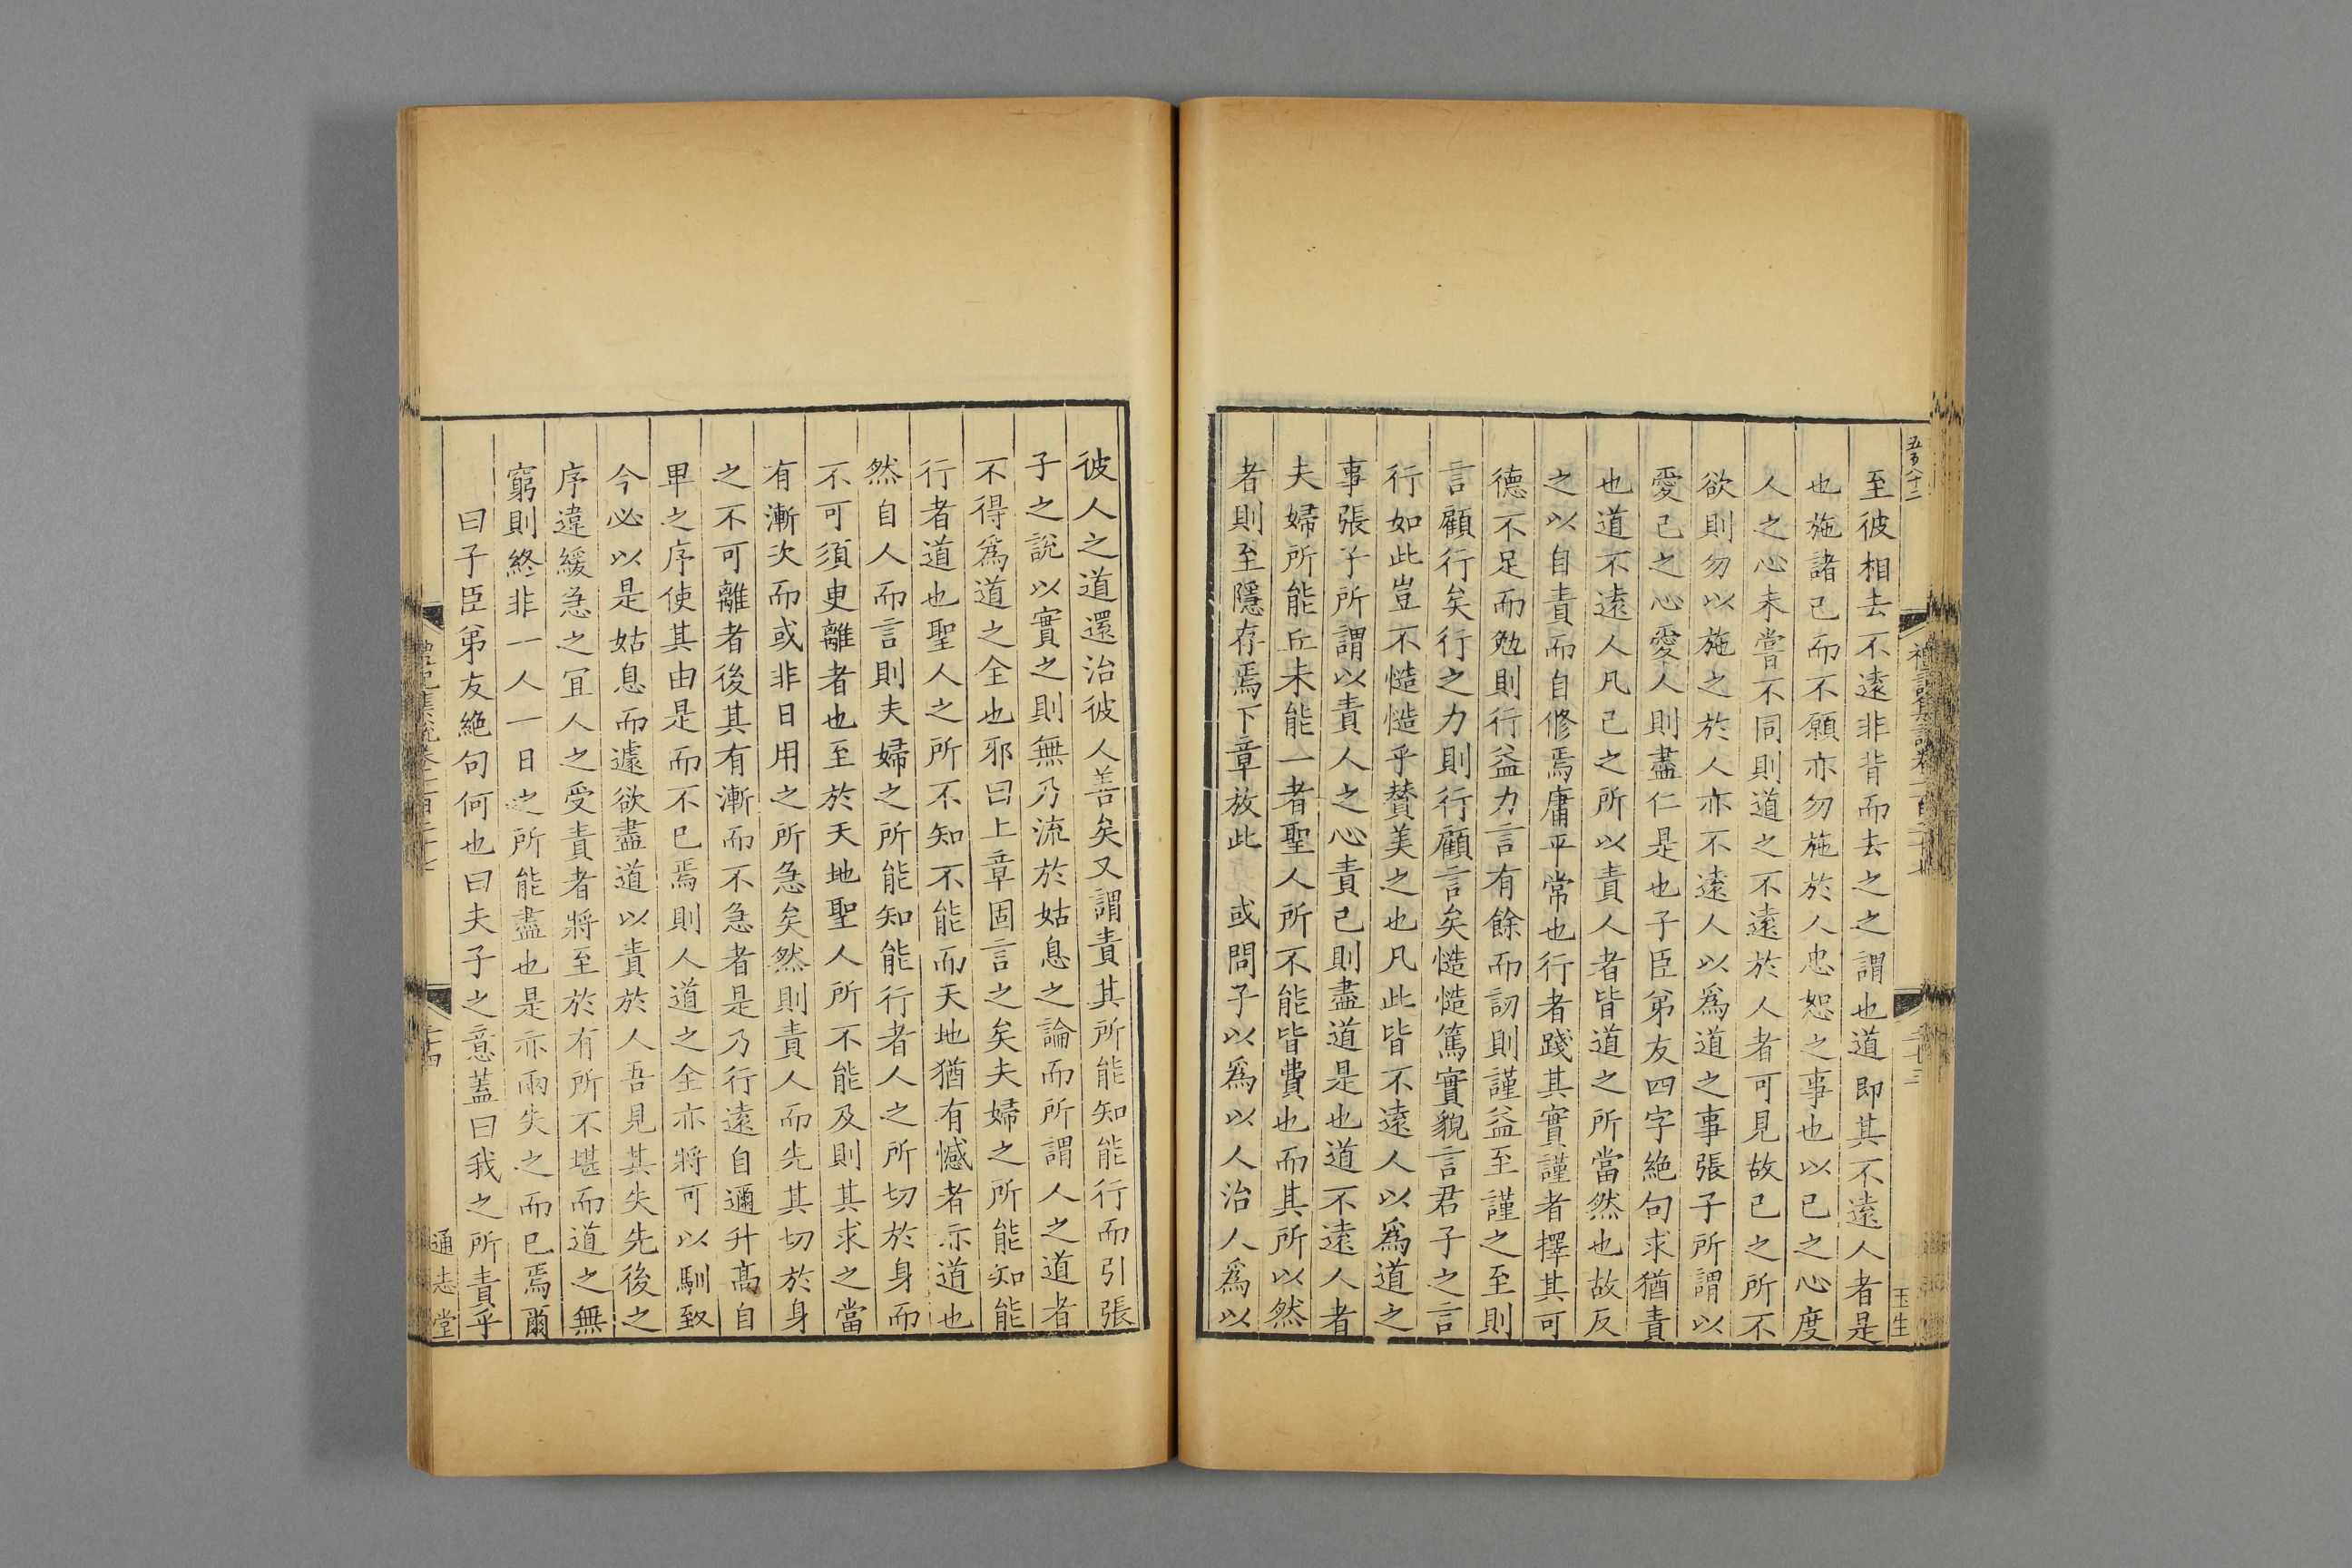 五百八十二
至彼相去不遠非背而去之之謂也道即其不遠人者是
也施諸己而不願亦勿施於人忠恕之事也以己之心度
人之心未嘗不同則道之不遠於人者可見故己之所不
欲則勿以施之於人亦不遠人以爲道之事張子所謂以
愛己之心愛人則盡仁是也子臣弟友四字絶句求猶責
也道不遠人凡己之所以責人者皆道之所當然也故反
之以自責而自修焉庸平常也行者踐其實謹者擇其可
德不足而勉則行益力言有餘而訒則謹益至謹之至則
言顧行矣行之力則行顧言矣慥慥篤實貌言君子之言
行如此豈不慥慥乎賛美之也凡此皆不遠人以爲道之
事張子所謂以責人之心責己則盡道是也道不遠人者
夫婦所能丘未能一者聖人所不能皆費也而其所以然
者則至隱存焉下章放此　或問子以爲以人治人爲以
禮記集說卷一百二十七
二十三
玉生
彼人之道還治彼人善矣又謂責其所能知能行而引張
子之說以實之則無乃流於姑息之論而所謂人之道者
不得爲道之全也邪曰上章固言之矣夫婦之所能知能
行者道也聖人之所不知不能而天地猶有憾者亦道也
然自人而言則夫婦之所能知能行者人之所切於身而
不可須㬰離者也至於天地聖人所不能及則其求之當
有漸次而或非日用之所急矣然則責人而先其切於身
之不可離者後其有漸而不急者是乃行遠自邇升髙自
卑之序使其由是而不已焉則人道之全亦將可以馴致
今必以是姑息而遽欲盡道以責於人吾見其失先後之
序違緩急之宜人之受責者將至於有所不堪而道之無
窮則終非一人一日之所能盡也是亦兩失之而已焉爾
曰子臣弟友絶句何也曰夫子之意蓋曰我之所責乎
禮記集說卷一百二十七
二十四
通志堂